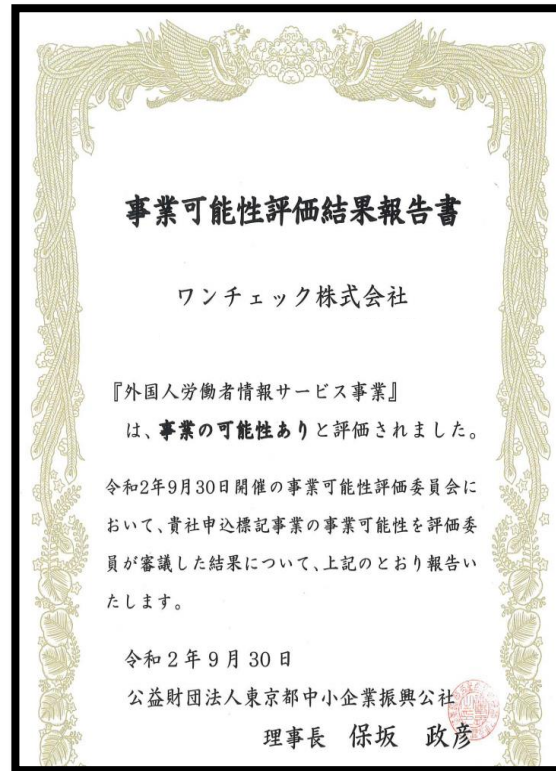 事業可能性評価結果報告書
ワンチェック株式会社
『外国人労働者情報サービス事業』
は、事業の可能性ありと評価されました。
令和2年9月30日開催の事業可能性評価委員会に
おいて、貴社申込標記事業の事業可能性を評価委
員が審議した結果について、上記のとおり報告い
たします。
令和2年9月30日
公益財団法人東京都中小企業振興公社
理事長 保坂 政彦